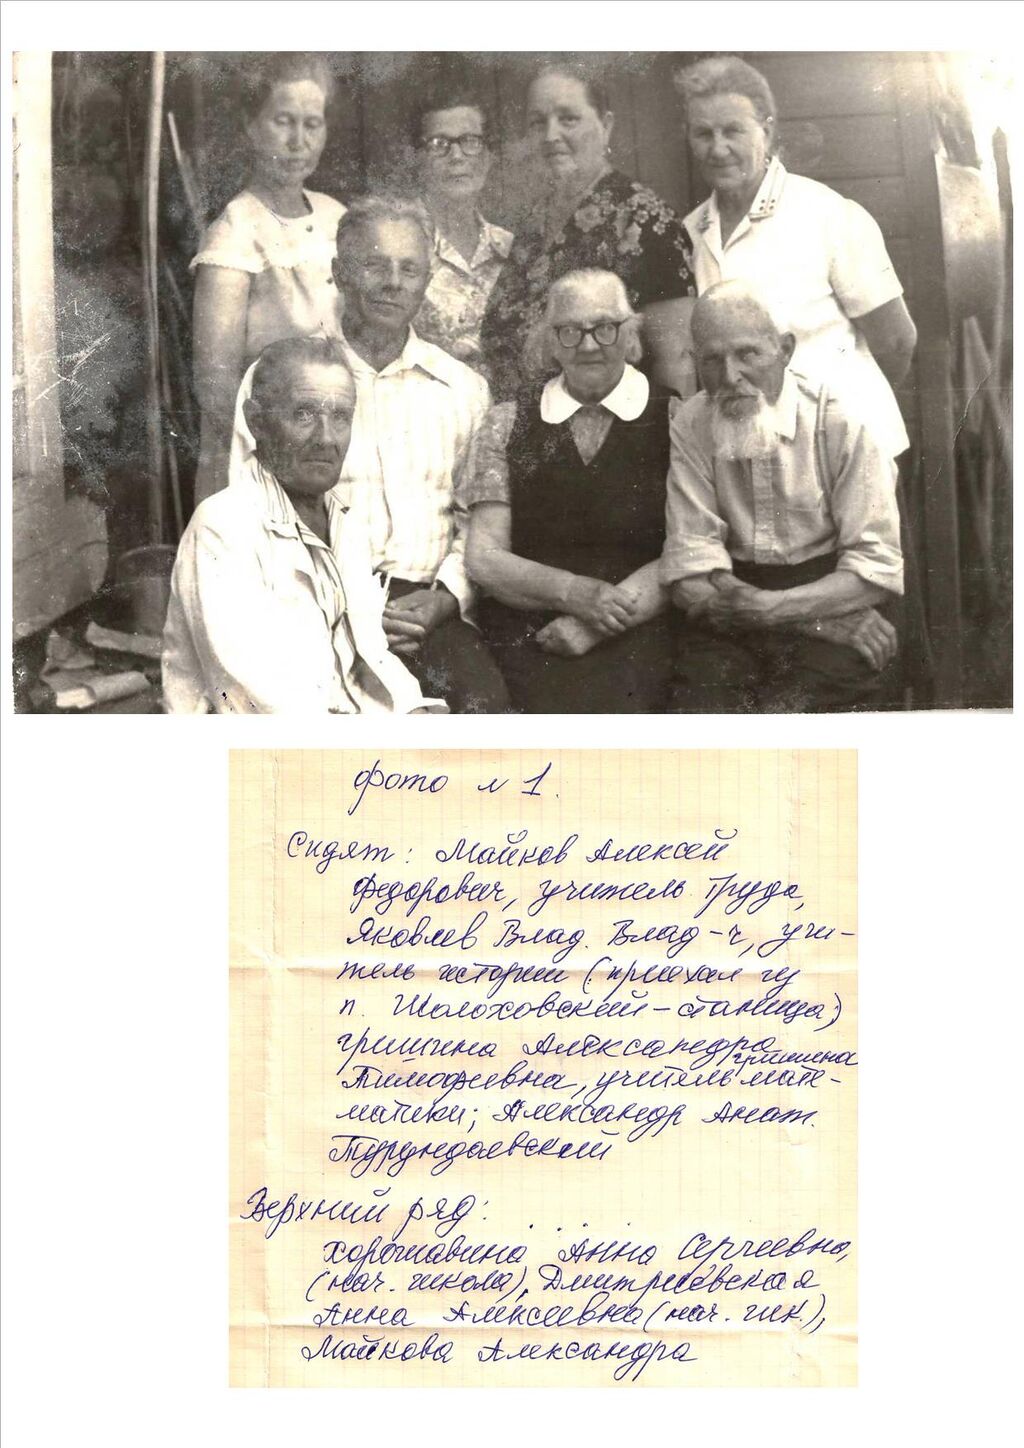 фото № 1.
Сидят: Майков Алексей
Федорович, учитель труда,
Яковлев Влад. Влад-ч, учи-
тель истории (приехал из
п. Шолоховский-станица)
Гришина Александра
Гришина
Тимофеевна, учитель мате-
матики; Александр Анат.
Турундаевский
Верхний ряд:
Хорошавина Анна Сергеевна,
(нач. школа), Дмитриевская
Анна Алексеевна (нач. шк.),
Майкова Александра